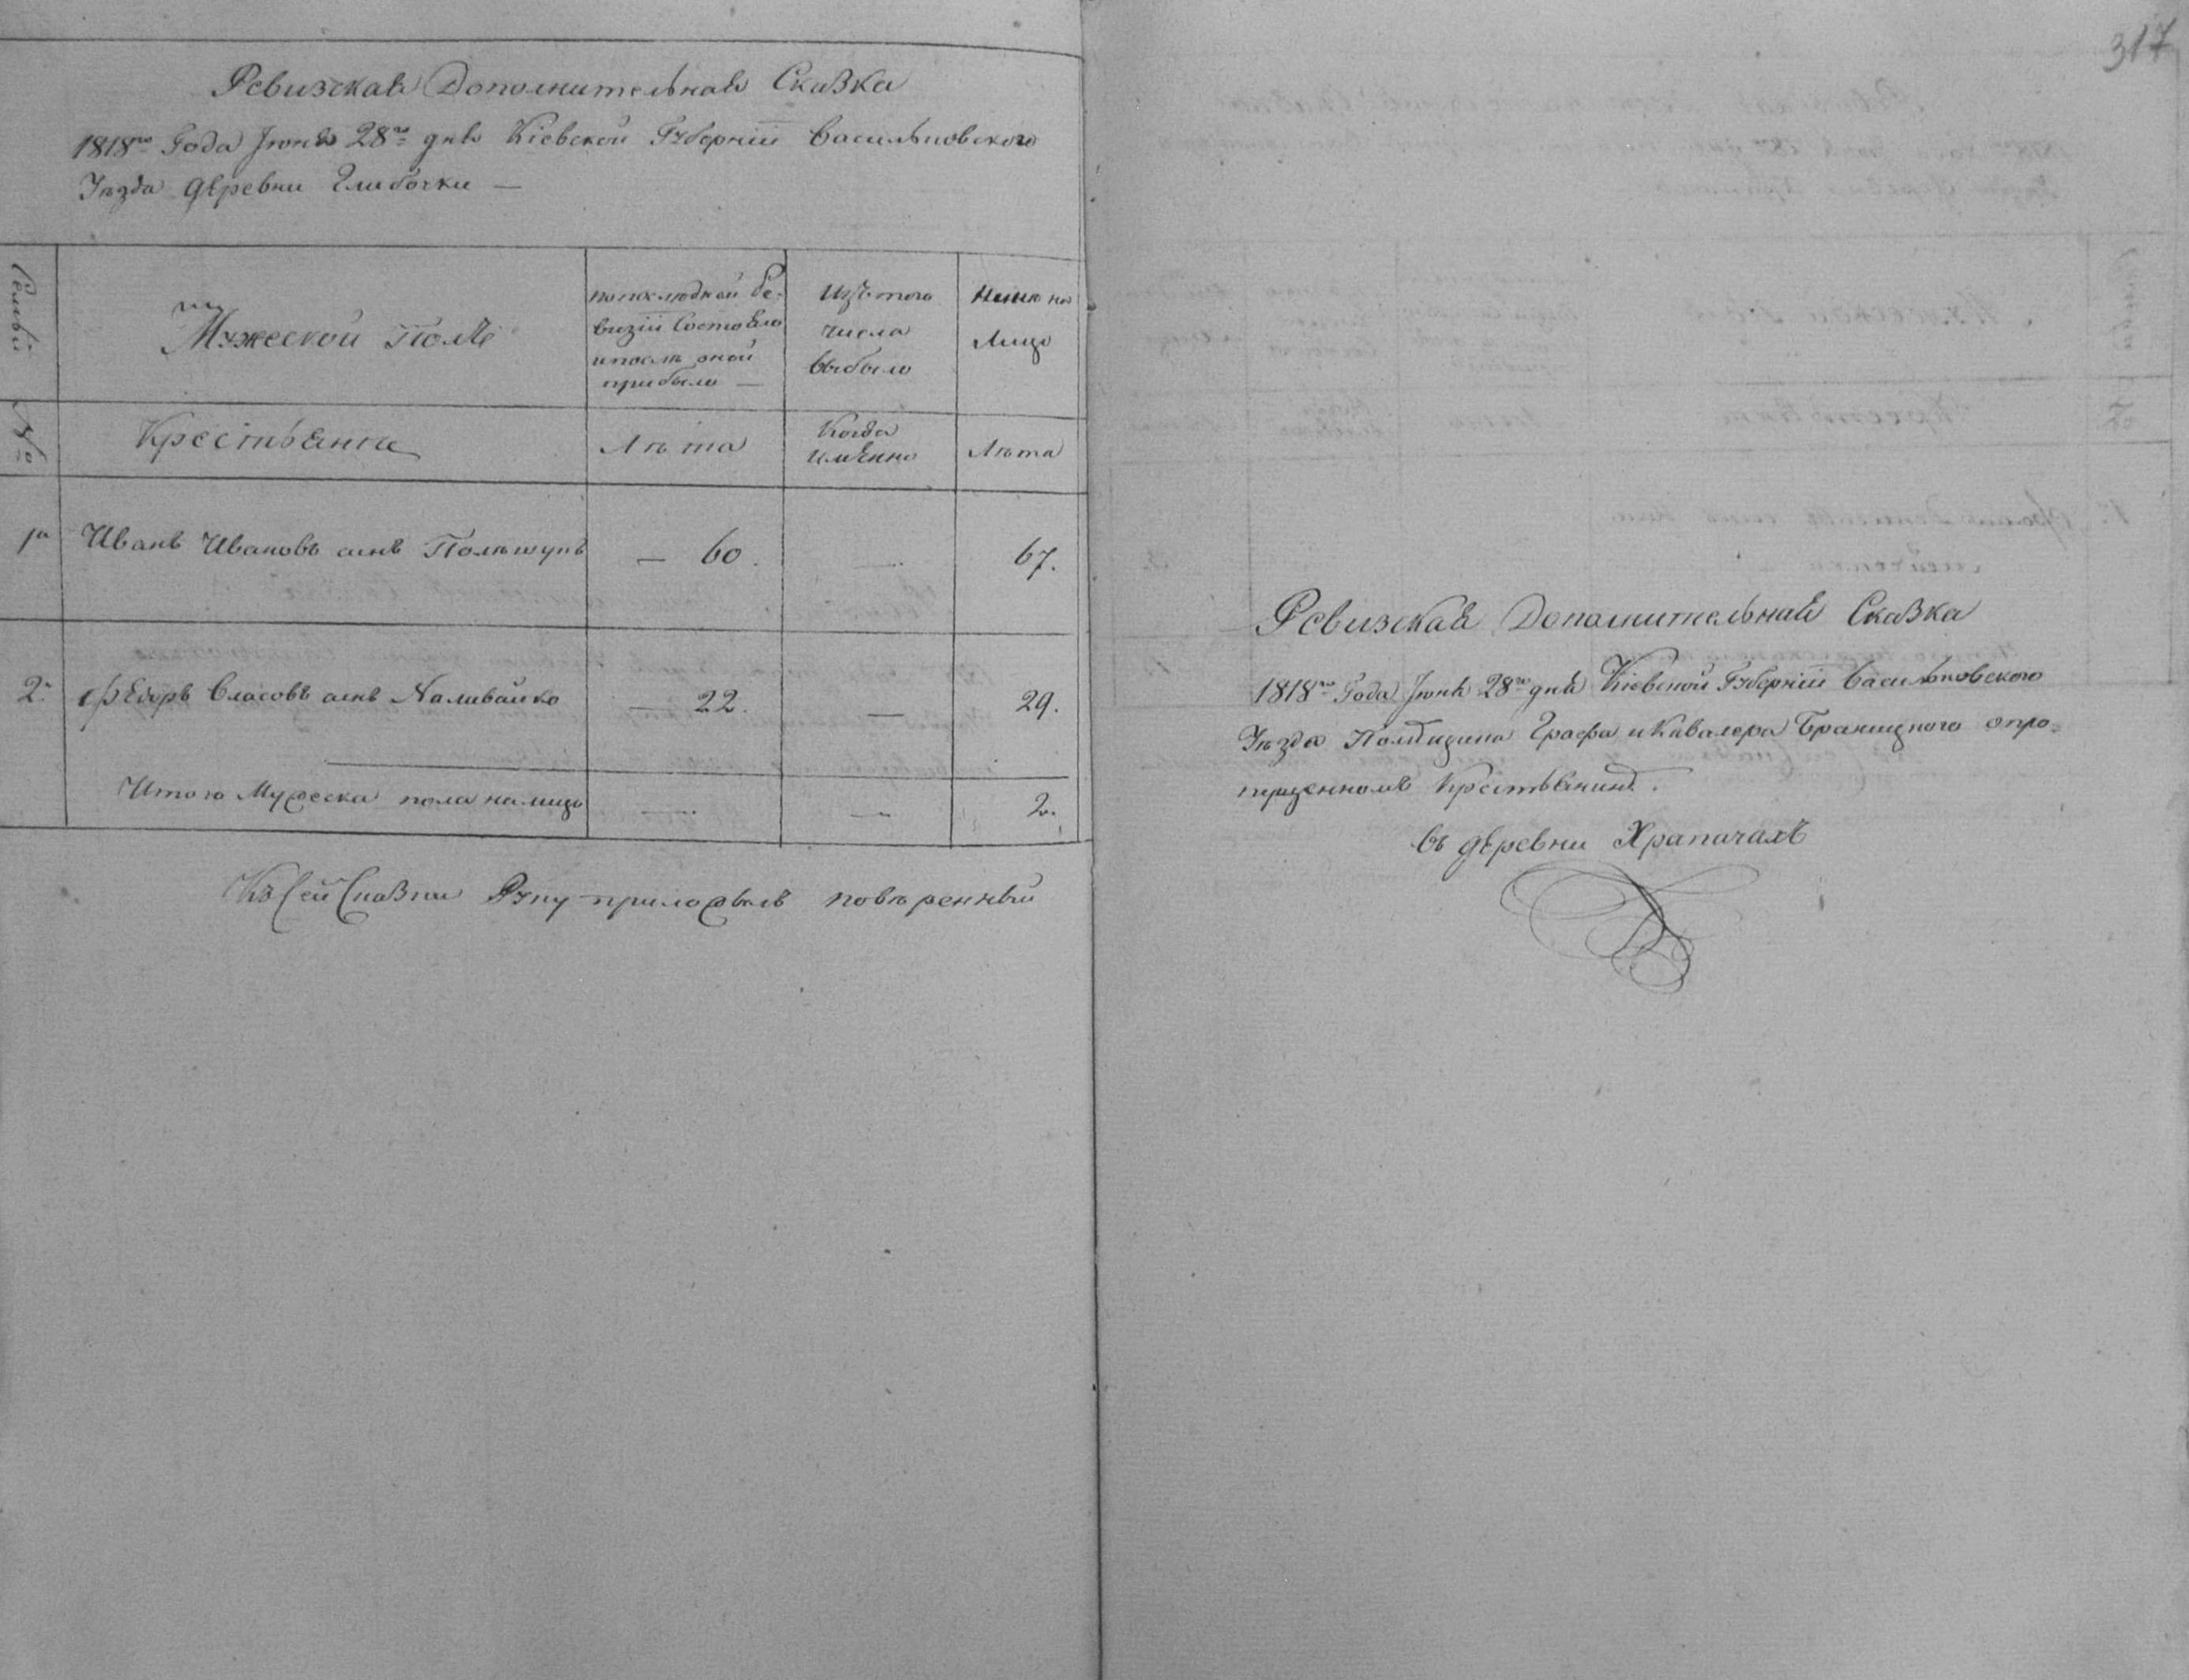 Ревизская Дополнительная Сказка
1818го Года Іюня 28го дня Кіевской Губерніи Васильковского
Уѣзда деревни Глибочки —
Мужеской Полъ
по последней ре-
визіи Состояло
и послѣ оной
прибыло —
Изъ того
числа
выбыло
Ныне на
Лицо
№
Крестьяне
Лѣта
Когда
имЕнно
Лѣта
1й Иванъ Ивановъ сынъ Полѣшукъ — 60. — 67.
2й Федоръ Власовъ сынъ Наливайко — 22. — 29.
Итого Мужеска пола налицо — — 2.
Къ Сей Сказки Руку приложилъ повѣренный
317
Ревизская Дополнительная Сказка
1818го Года Іюня 28го дня Кіевской Губерніи Васильковского
Уѣзда Помѣщика Графа и Кавалера Браницкого о про-
пущенномъ Крестьянинѣ.
въ деревни Храпачахъ